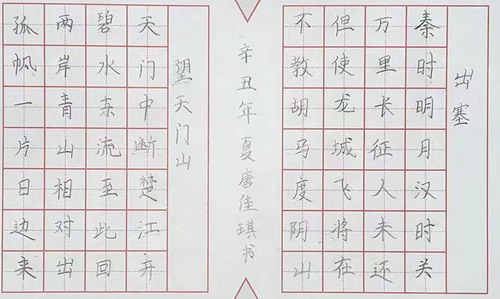 出塞
秦时明月汉时关
万里长征人未还
但使龙城飞将在
不教胡马度阴山
辛丑年夏唐佳琪书
望天门山
天门中断楚江开
碧水东流至此回
两岸青山相对出
孤帆一片日边来